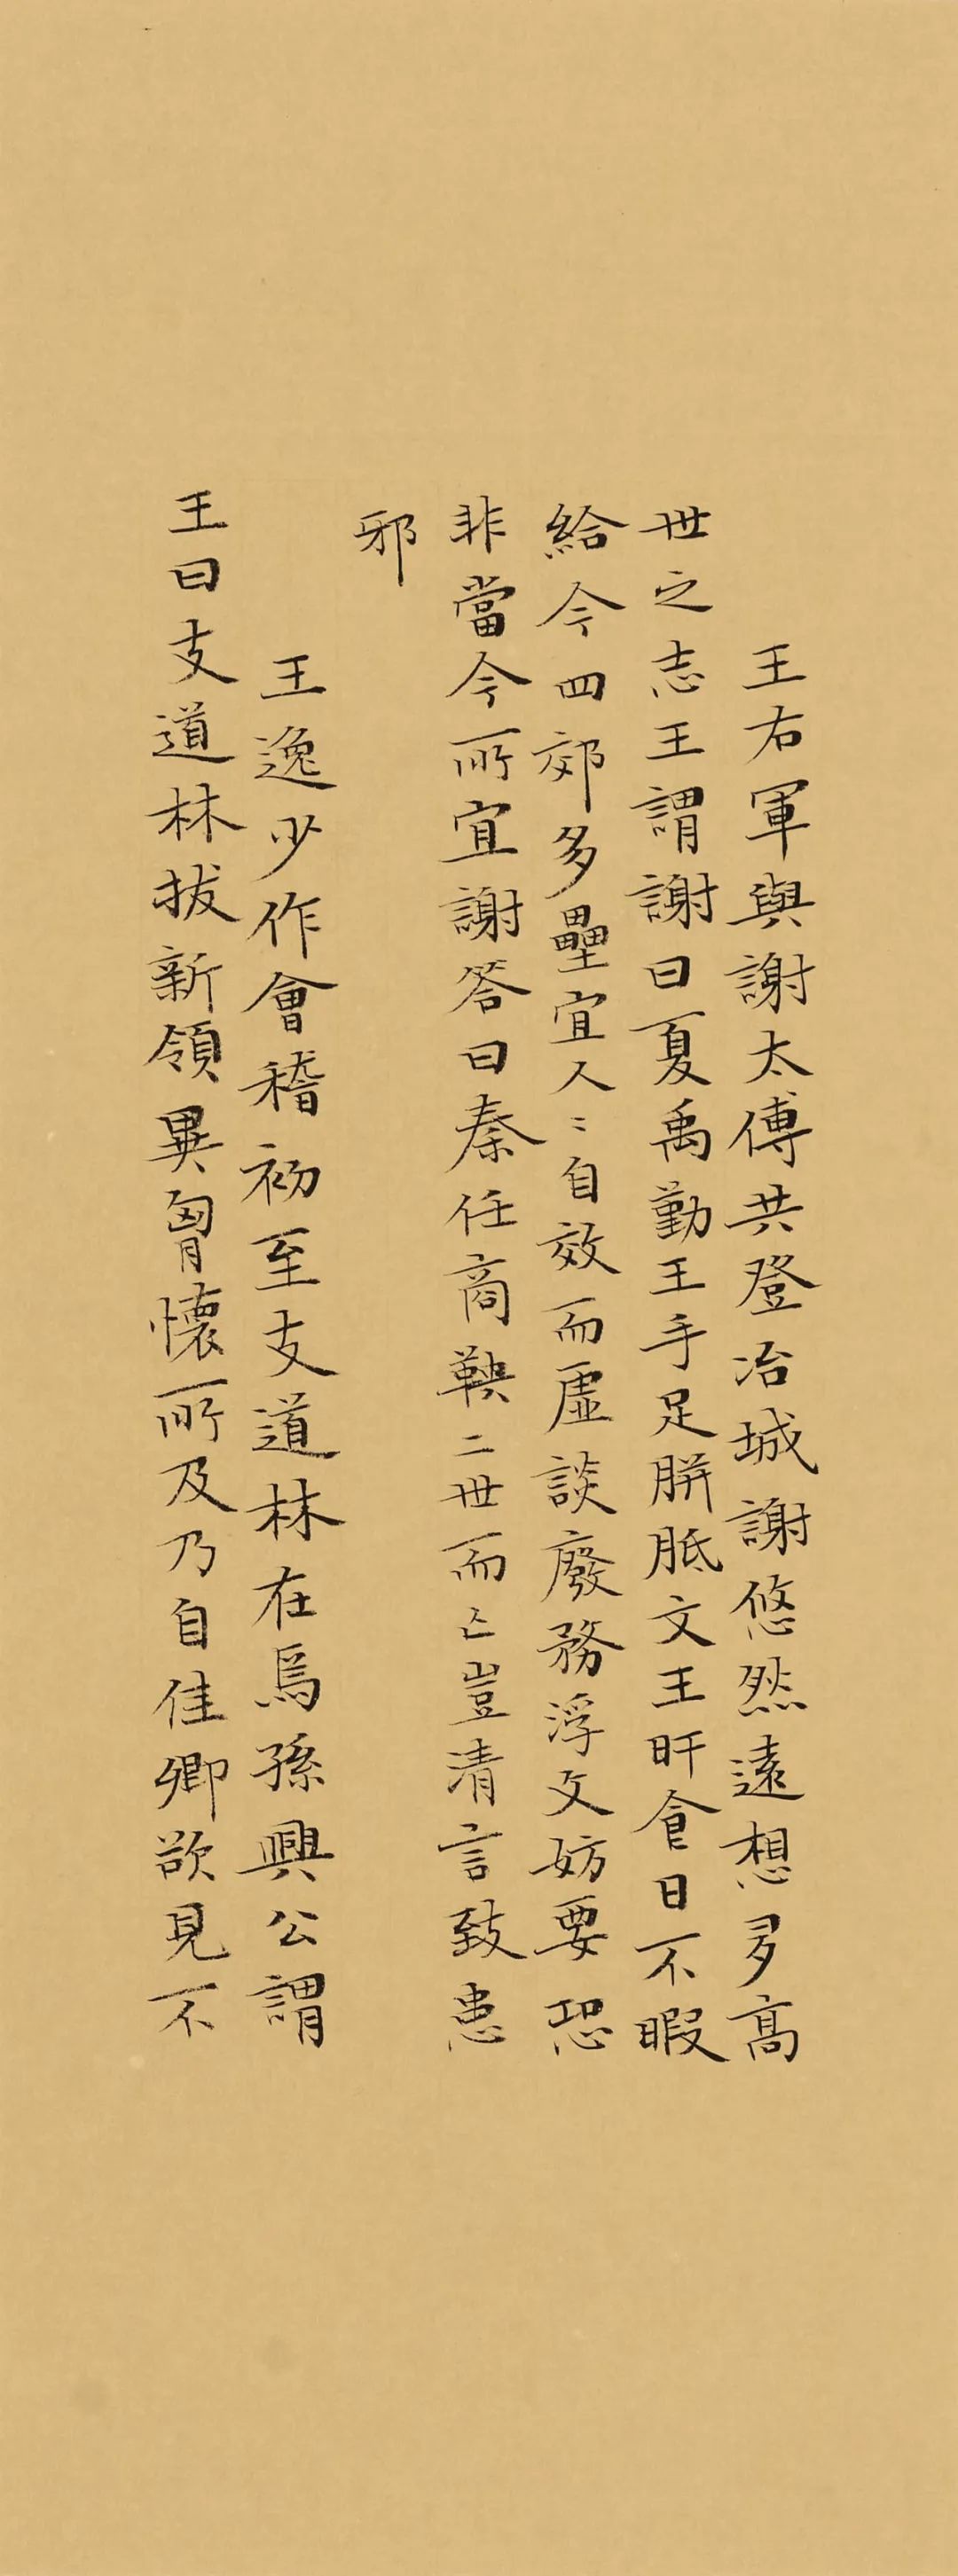 王右軍與謝太傅共登冶城謝悠然遠想有高
世之志王謂謝曰夏禹勤王手足胼胝文王旰食日不暇
給今四郊多壘宜人〻自效而虛談廢務浮文妨要恐
非當今所宜謝答曰秦任商鞅二世而亡豈清言致患
邪
王逸少作會稽初至支道林在焉孫興公謂
王曰支道林拔新領異胷懷所及乃自佳卿欲見不